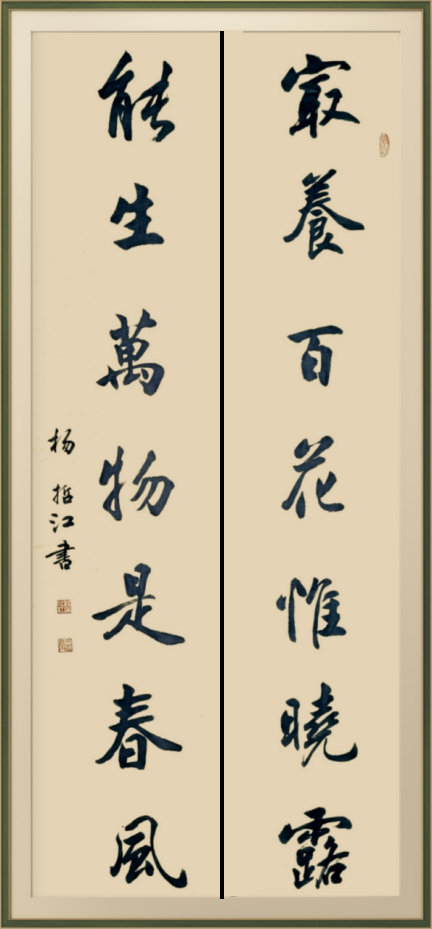 冣養百花惟曉露
能生萬物是春風
杨哲江書